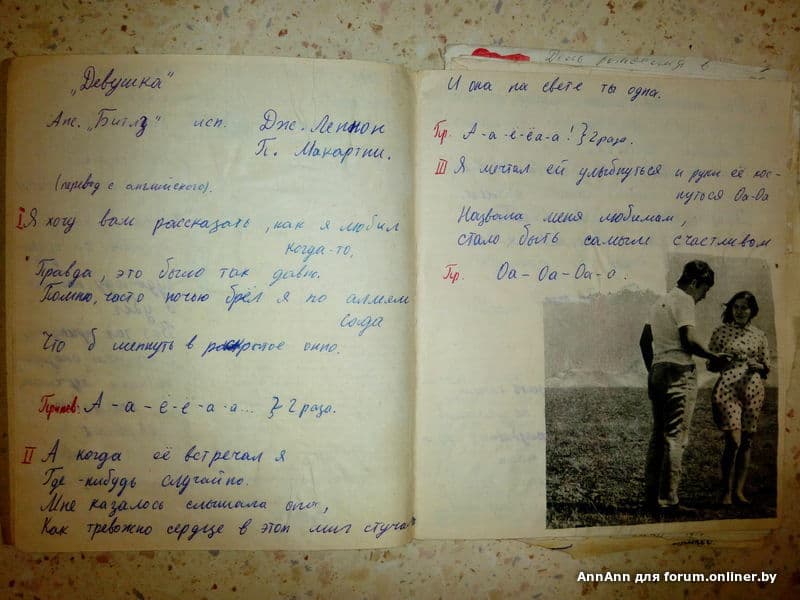 „Девушка“
Анс. „Битлз“ исп. Дж. Леннон
П. Макартни.
(перевод с английского).
I Я хочу вам рассказать, как я любил
когда-то,
Правда, это было так давно.
Помню, часто ночью брёл я по аллеям
сада
Что б шепнуть в раскрытое окно.
Припев: А-а-ё-ё-а-а... } 2 раза.
II А когда её встречал я
Где-нибудь случайно.
Мне казалось слышала она,
Как тревожно сердце в этот миг стучал
День рождения
И она на свете ты одна.
Пр. А-а-ё-ёа-а! } 2 раза.
III Я мечтал ей улыбнуться и руки её кос-
нуться Оа-Оа
Назвала меня любимым,
стало быть самым счастливом
Пр. Оа-Оа-Оа-а.
AnnAnn для forum.onliner.by